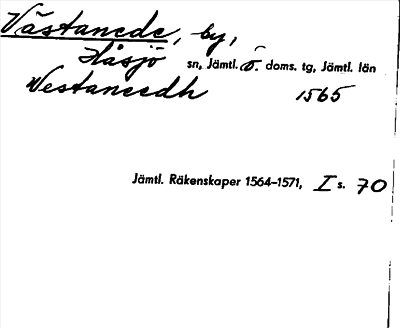 Västanede, by,
Håsjö sn, Jämtl. ö. doms. tg, Jämtl. län
Westaneedh 1565
Jämtl. Räkenskaper 1564–1571, I s. 70